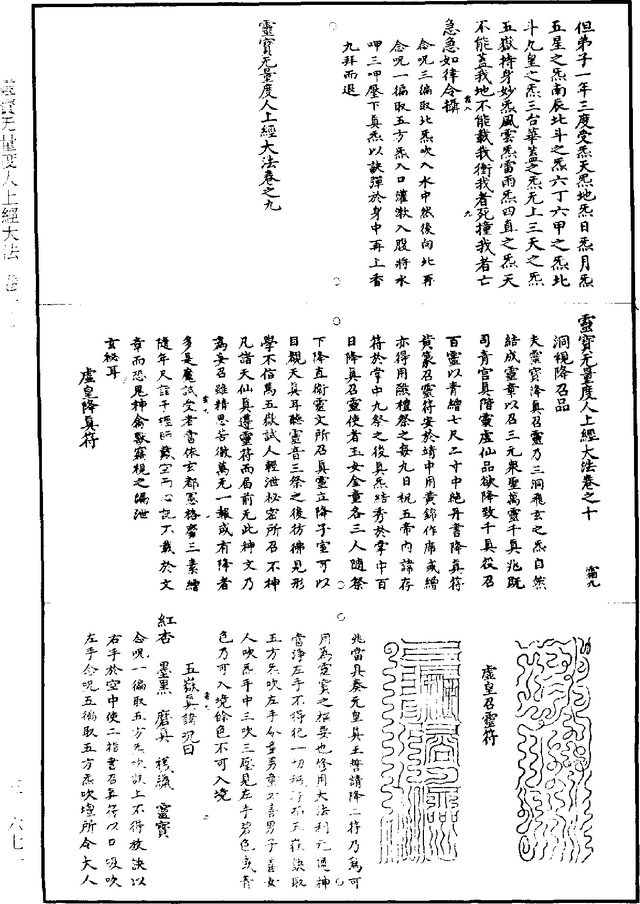 但弟子一年三度受炁天炁地炁日炁月炁
五星之炁南辰北斗之炁六丁六甲之炁北
斗九皇之炁三台華蓋之炁无上三天之炁
五嶽持身妙炁風雲炁雷雨炁四直之炁天
不能蓋我地不能載我衝我者死撞我者亡
急急如律令攝
念咒三徧取北炁吹入水中然後向北再
念咒一徧取五方炁入口灌漱入腹將水
呷三呷壓下真炁以訣彈於身中再上香
九拜而退
靈寶无量度人上經大法卷之九
靈寶无量度人上經大法卷之十
霜九
洞視降召品
夫靈寶降真召靈乃三洞飛玄之炁自然
結成靈章以召三元衆聖萬靈千真兆既
司青宮具階靈虛仙品欲降致千真役召
百靈以青繒七尺二寸中絕丹書降真符
黃篆召靈符安於靖中用黃錦作席或繒
亦得用醮禮祭之每九日祝五帝內諱存
符於掌中九祭之後真炁結秀於掌中百
日降真召靈使者玉女金童各三人隨祭
下降直衛靈文所召真靈立降子室可以
目覩天真耳聽靈音三祭之後彷彿見形
學不信爲五嶽試人輕泄秘密所召不神
凡諸天仙真遵靈符而屆前无此神文乃
爲妄召雖精思苦徹萬无一報或有降者
多是魔試受者當依玄都
隨年尺
章而恐鬼神禽獸竊視之漏泄
玄秘耳
虛皇降真符
虛皇召靈符
兆當具奏元皇真王誓請降二符乃爲可
用爲靈寶之樞要也
當淨左手不得犯一切
五方炁吹左手
人吹炁手中三吹三壓見左手碧色或青
色乃可入境餘色不可入境
五嶽真諱咒曰
紅杏 墨黑 靈寶
念咒一徧取五方炁吹訣上不得放訣以
右手於空中使二指書召真符以口吸吹
左手念咒五徧取五方炁吹壇所令大人
靈寶无量度人上經大法